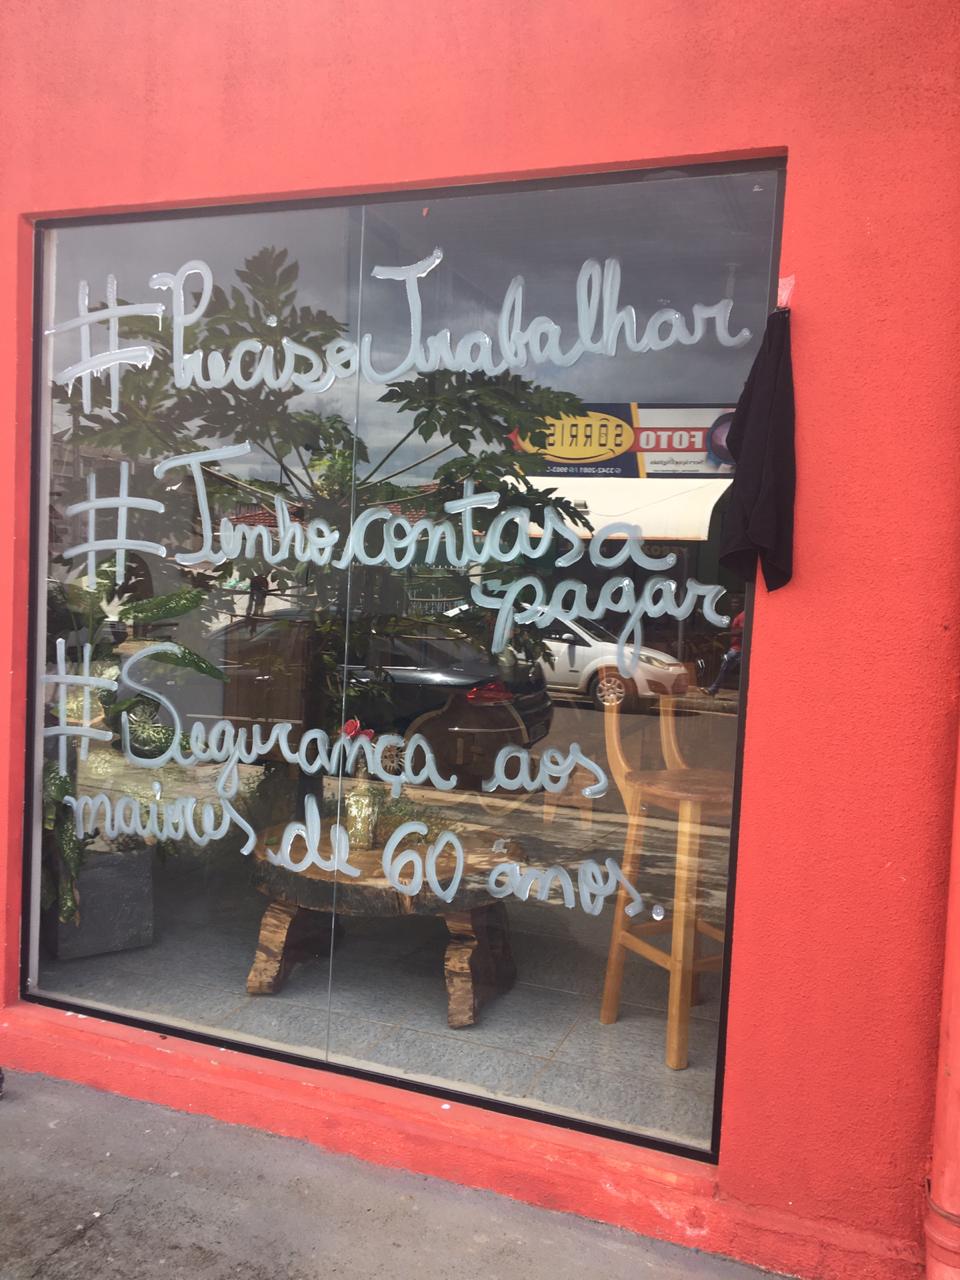 #PrecisoTrabalhar
#Tenho contas a
pagar
#Segurança aos
maiores de 60 anos.
SORRIS FOTO